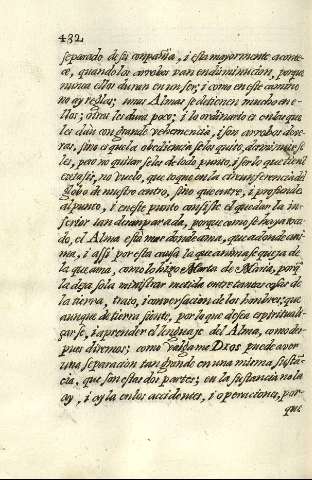 432
separado de su compañia, i esta mayormente aconte-
ce, quando los arrobos van en diminucion, porque
nunca ellos duran en un ser; i como en este camino
no ay reglas; unas Almas se detienen mucho en e-
llos; otras les dura poco; i lo ordinario es en las que
les dàn con grande vehemencia, i son arrobos dove-
ras, sino es que la obediencia se los quite, disminuirse
les, pero no quitarselas de todo punto, i ser lo que tiene
extasis, no vuelo, que toque en la circunferencia del
globo de nuestro centro, sino que entre, i profunde
al punto, i en este punto consiste el quedar la in-
ferior tan desamparada, porque como se haya toca-
do, el Alma està mas donde ama, que adonde ani-
ma, i assi por esta causa la que anima se quexa de
la que ama, como lo hizo Marta de Maria, porq
la dexa sola ministrar metida entre tantas cosas de
la tierra, trato, i conversacion de los hombres; que
aunque de tierra siente, por lo que desea espirituali-
zarse, i aprender el lenguaje del Alma, como des-
pues diremos; como valgame Dios puede aver
una separacion tan grande en una misma sustã-
cia, que son estas dos partes; en la sustancia no la
ay, i ay la en los accidentes, i operaciones, por-
que